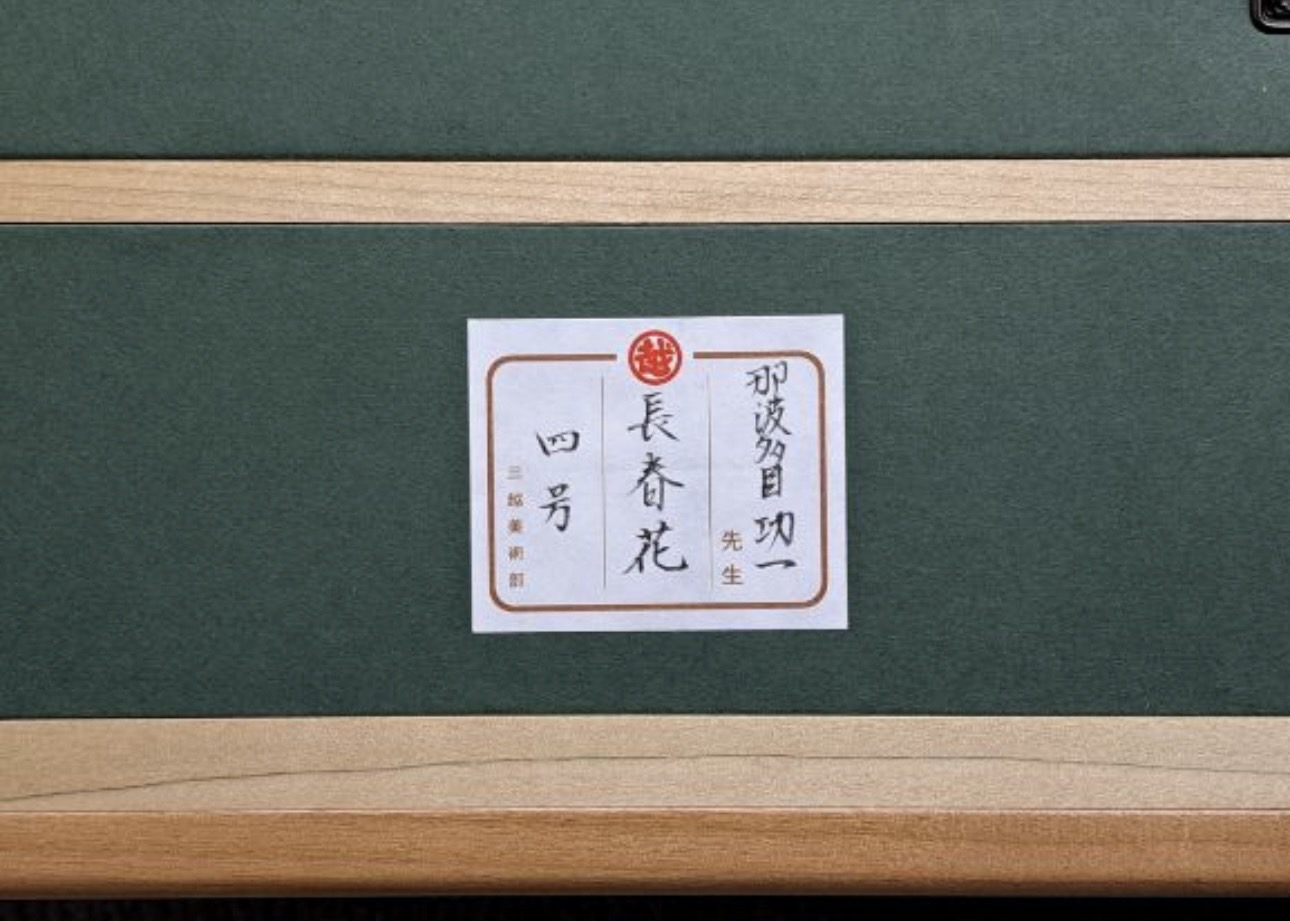 越
那波多目功一
先生
長春花
四号
三越美術部